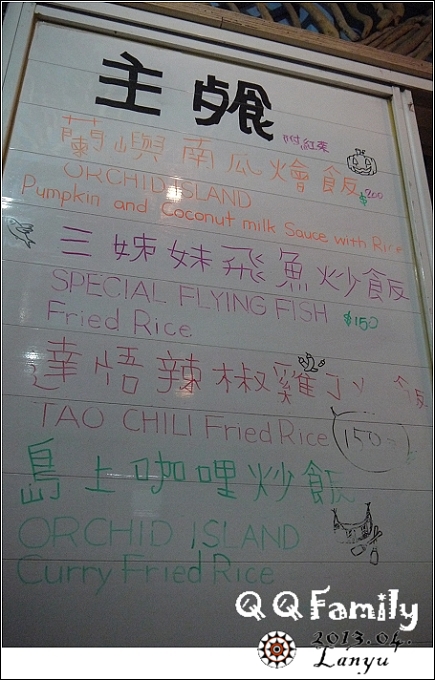 主餐
附紅茶
蘭嶼南瓜燴飯
$200
ORCHID ISLAND
Pumpkin and Coconut milk Sauce with Rice
三姊妹飛魚炒飯
SPECIAL FLYING FISH
Fried Rice $150
達悟辣椒雞丁
TAO CHILI Fried Rice 150
島上咖哩炒飯
ORCHID ISLAND
Curry Fried Rice
QQ Family
2013.04.
Lanyu